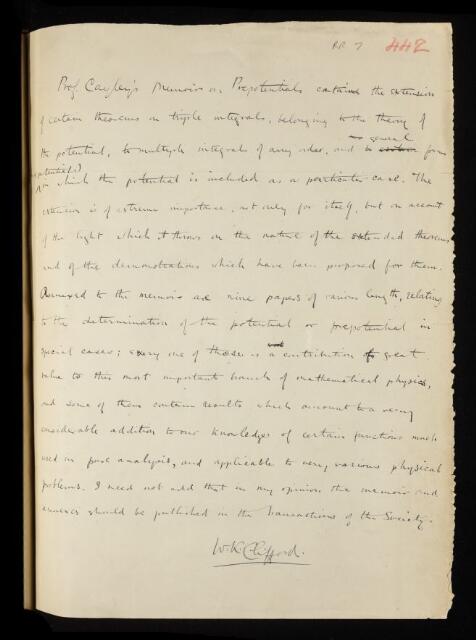 RR 7 442
Prof. Cayley's Memoir on Prepotentials contains the extension
of certain theorems on triple integrals, belonging to the theory of
the potential, to multiple integrals of any order, and to general form
(prepotentials) in which the potential is included as a particular case. The
extension is of extreme importance, not only for itself, but on account
of the light which it throws on the nature of the extended theorems
and of the demonstrations which have been proposed for them.
Annexed to the memoir are nine papers of various length, relating
to the determination of the potential or prepotential in
special cases; every one of these is a contribution of great
value to this most important branch of mathematical physics,
and some of them contain results which amount to a very
considerable addition to our knowledge of certain functions much
used in pure analysis, and applicable to very various physical
problems. I need not add that in my opinion the memoir and
annexes should be published in the Transactions of the Society.
W.K. Clifford.